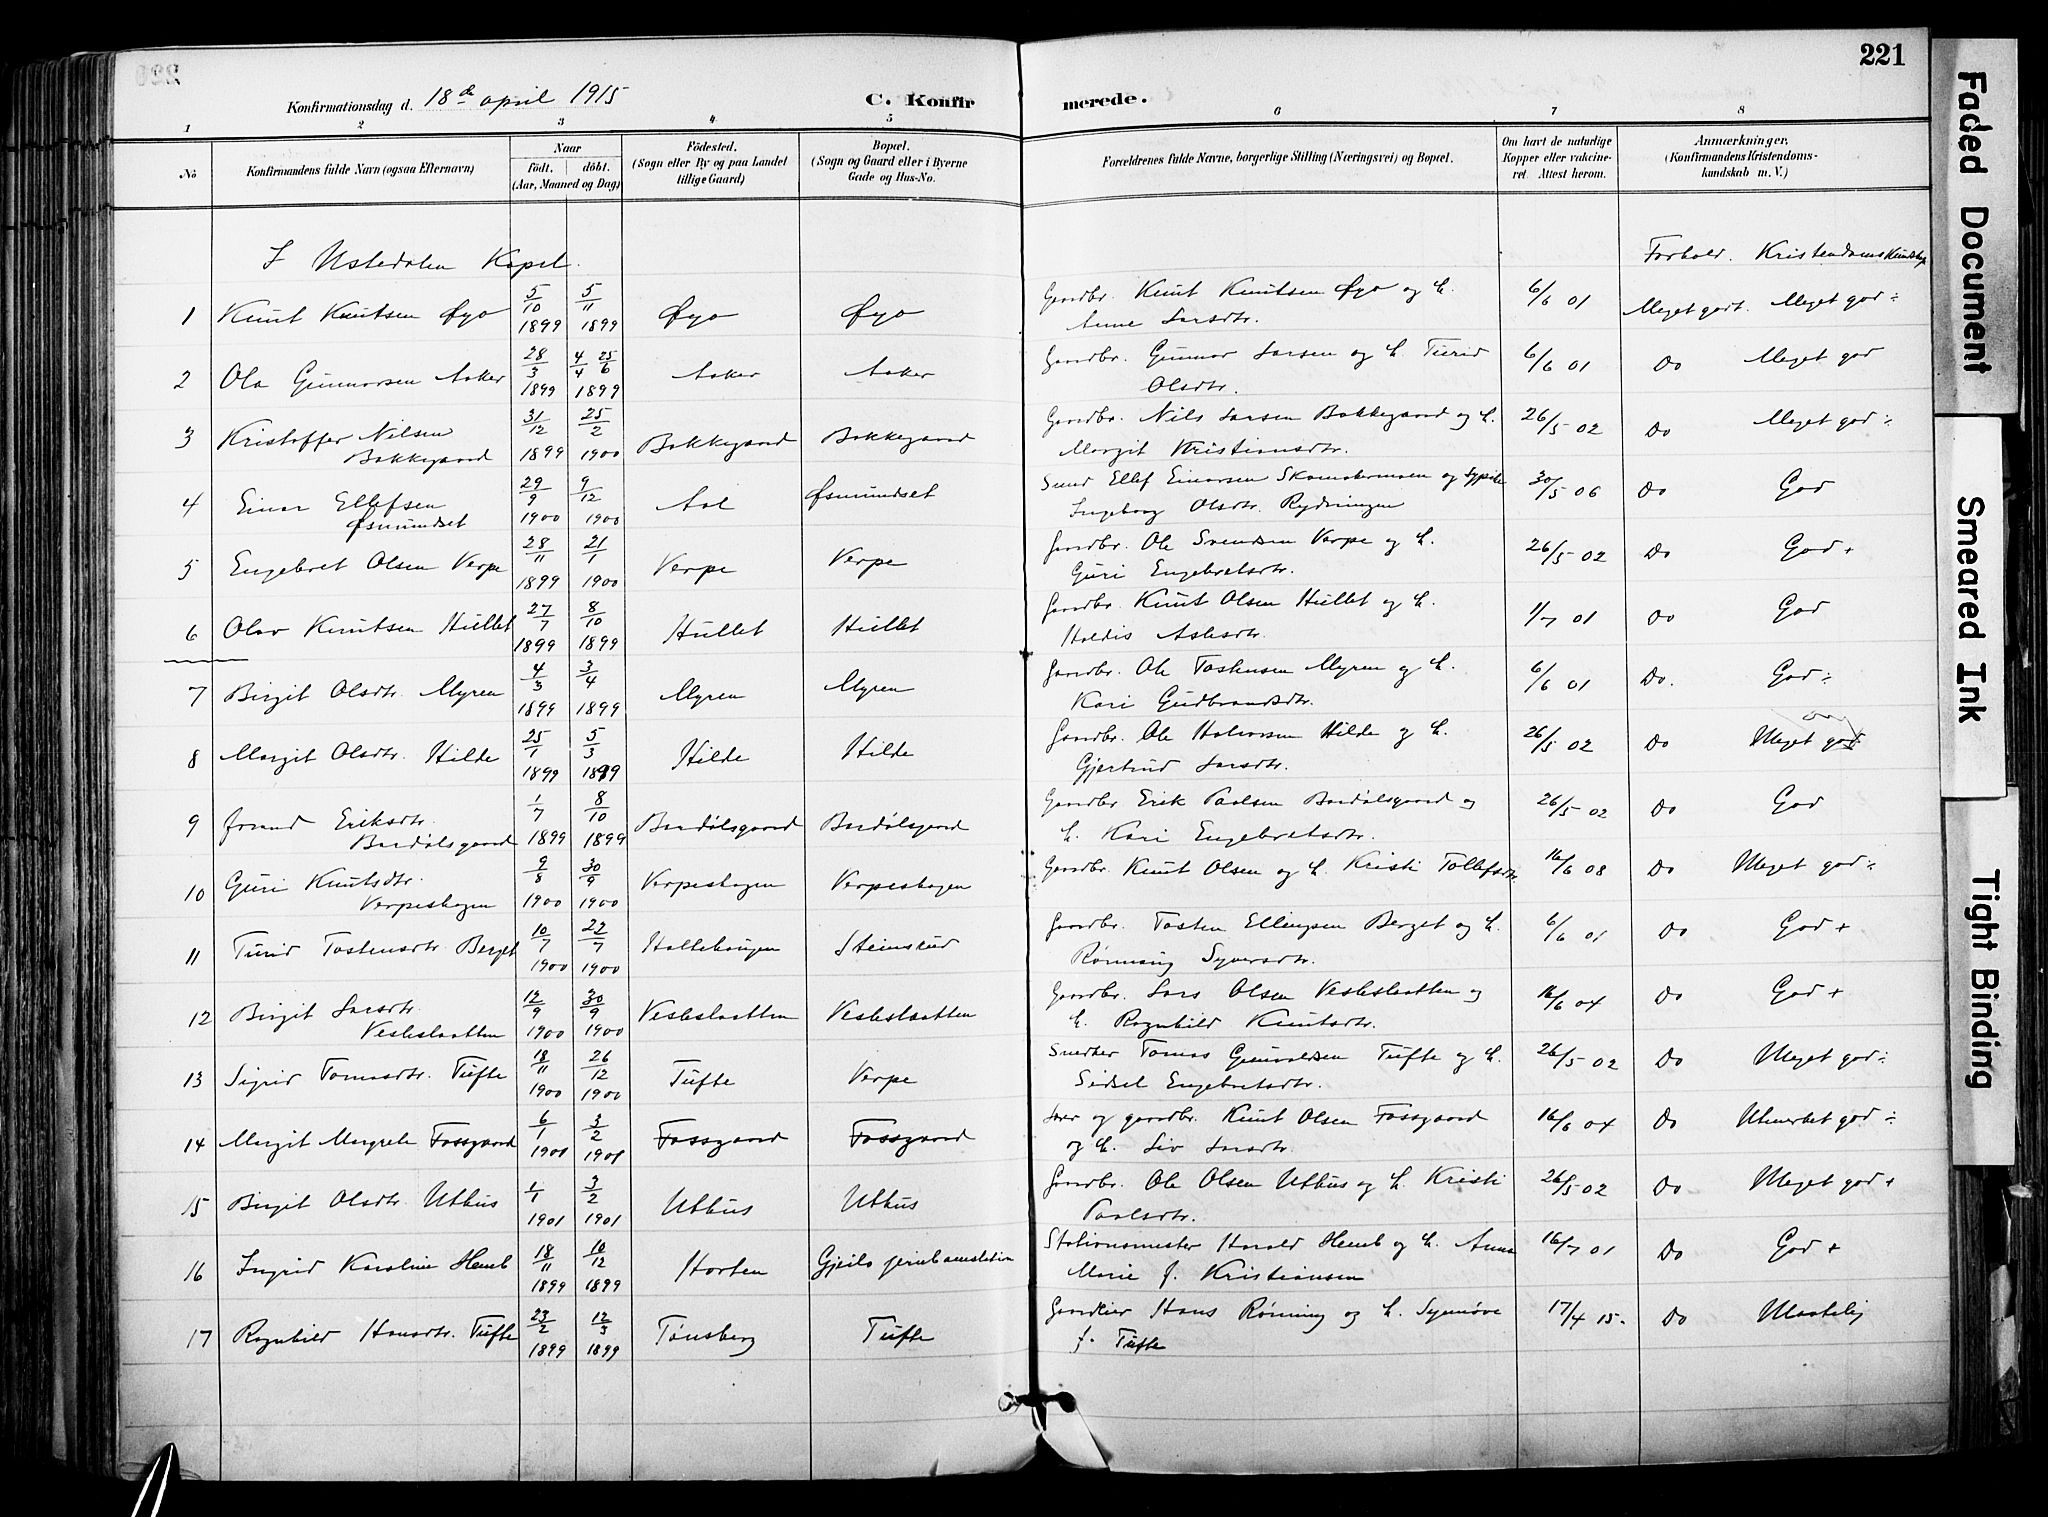 221
Konfirmationsdag d. 18de april 1915
C. Konfirmerede.
1 2 3 4 5 6 7 8
No
Konfirmandens fulde Navn (ogsaa Efternavn)
Naar
födt. döbt.
(Aar, Maaned og Dag)
Födested.
(Sogn eller By og paa Landet
tillige Gaard)
Bopæl.
(Sogn og Gaard eller i Byerne
Gade og Hus-No.
Forældrenes fulde Navne, borgerlige Stilling (Næringsvei) og Bopæl.
Om havt de naturlige
Kopper eller vakcine-
ret. Attest herom.
Anmærkninger.
(Konfirmandens Kristendoms-
kundskab m. V.)
I Ustedalen Kapel.
Forhold. Kristendomskundskap
1 Knut Knutsen Øyo 5/10 1899 5/11 1899 Øyo Øyo Gaardbr. Knut Knutsen Øyo og h.
Anne Larsdtr. 6/6 01 Meget godt. Meget god ÷
2 Ola Gunnarsen Aaker 28/3 1899 4/4 25/6 1899 Aaker Aaker Gaardbr. Gunnar Larsen og h. Turid
Olsdtr. 6/6 01 Do Meget god
3 Kristoffer Nilsen
Bakkegaard 31/12 1899 25/2 1900 Bakkegaard Bakkegaard Gaardbr. Nils Larsen Bakkegaard og h.
Margit Kristiansdtr. 26/5 02 Do Meget god ÷
4 Einar Ellefsen
Øsmundset 29/9 1900 9/12 1900 Aal Øsmundset Ellef Einarsen og
Ingeborg Olsdtr. Rydningen 30/5 06 Do God
5 Engebret Olsen Verpe 28/11 1899 21/1 1900 Verpe Verpe Gaardbr. Ole Svendsen Verpe og h.
Guri Engebretsdtr. 26/5 02 Do God +
6 Olav Knutsen Hullet 27/7 1899 8/10 1899 Hullet Hullet Gaardbr. Knut Olsen Hullet og h.
Haldis Aslesdtr. 1/7 01 Do God
7 Birgit Olsdtr. Myren 4/3 1899 3/4 1899 Myren Myren Gaardbr. Ole Tostensen Myren og h.
Kari Gudbrandsdtr. 6/6 01 Do. God ÷
8 Margit Olsdtr. Hilde 25/1 1899 5/3 1899 Hilde Hilde Gaardbr. Ole Halvorsen Hilde og h.
Gjertrud Larsdtr. 26/5 02 Do Meget god
9 Jorand Eriksdtr.
Bardølsgaard 1/7 1899 8/10 1899 Bardølsgaard Bardølsgaard Gaardbr Erik Paalsen Bardølsgaard og
h. Kari Engebretsdtr. 26/5 02 Do God
10 Guri Knutsdtr.
Verpeshagen 9/8 1900 30/9 1900 Verpeshagen Verpeshagen Gaardbr. Knut Olsen og h. Kristi Tollefsdtr. 16/6 08 Do Meget god ÷
11 Turid Tostensdtr. Berget 10/7 1900 22/7 1900 Hallehaugen Steinstud Gaardbr. Tosten Ellingsen Berget og h.
Rønnaug Syversdtr. 6/6 01 Do God +
12 Birgit Larsdtr.
Vesleslaatten 12/9 1900 30/9 1900 Vesleslaatten Vesleslaatten Gaardbr. Lars Olsen Vesleslaatten og
h. Ragnhild Knutsdtr. 16/6 04 Do God +
13 Sigrid Tomasdtr. Tufte 18/11 1900 26/12 1900 Tufte Verpe Snedker Tomas Gunvaldsen Tufte og h.
Sidsel Engebretsdtr. 26/5 02 Do Meget god ÷
14 Margit Margrete Fossgaard 6/1 1901 3/2 1901 Fossgaard Fossgaard Lærer og gaardbr. Knut Olsen Fossgaard
og h. Liv Larsdtr. 16/6 04 Do Utmerket god ÷
15 Birgit Olsdtr. Uthus 1/1 1901 3/2 1901 Uthus Uthus Gaardbr. Ole Olsen Uthus og h. Kristi
Paalsdtr. 26/5 02 Do Meget god +
16 Ingrid Karoline Hemb 18/11 1899 10/12 1899 Horten Gjeilo jernbanestation Stationsmester Harald Hemb og h. Anna
Marie f. Kristiansen 16/7 01 Do God +
17 Ragnhild Hansdtr. Tufte 23/2 1899 12/3 1899 Tønsberg Tufte Gaardeier Hans Rønning og h. Synnøve
f. Tufte 17/4 15. Do Maatelig
Faded Document
Smeared Ink
Tight Binding